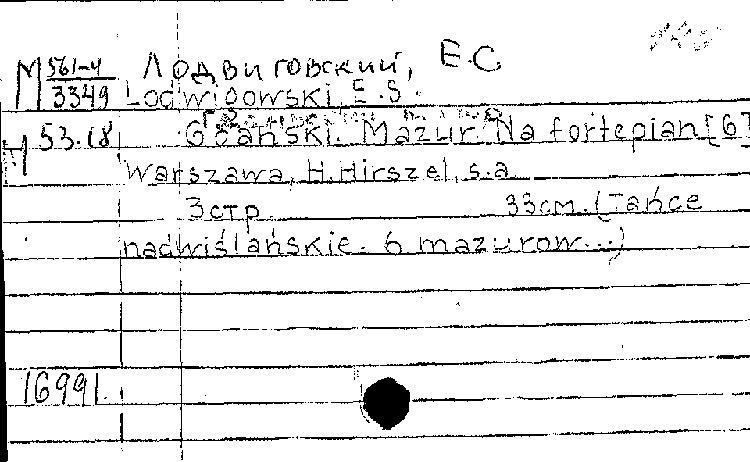 М 561-4 Лодвиговский, Е.С
3349 Lodwigowski E.S.
Ч 53.18 Gdański. Mazur. Na fortepian [6]
Warszawa, H.Hirszel, s.a
3стр. 33см. (Tańce
nadwiślańskie. 6 mazurow...)
16991